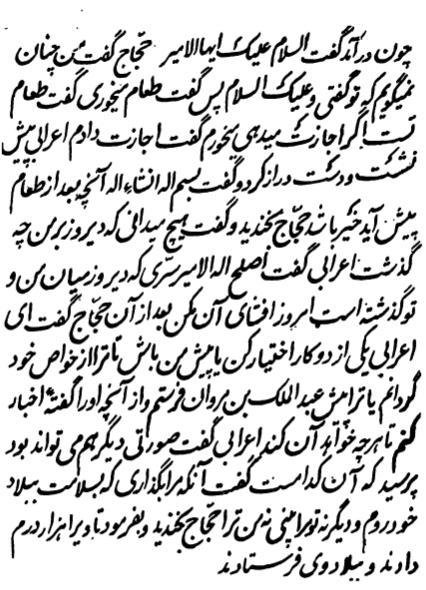 چون درآمد گفت السلام علیک ایها الامیر حجاج گفت من چنان
نمیگویم که تو گفتی وعلیک السلام پس گفت طعام میخوری گفت طعام
تست اگر اجازت میدهی میخورم گفت اجازت دادم اعرابی پیش
نشست و دست دراز کرد و گفت بسم اله انشاء اله آنچه بعد از طعام
پیش آید خیر باشد حجاج بخندید و گفت هیچ میدانی که دیروز بر من چه
گذشت اعرابی گفت اصلح اله الامیر سرّی که دیروز میان من و
تو گذشته است امروز افشای آن مکن بعد از آن حجاج گفت ای
اعرابی یکی از دو کار اختیار کن یا پیش من باش تا ترا از خواص خود
گردانم یا ترا پیش عبد الملک بن مروان فرستم و از آنچه او را گفتهٔ اخبار
کنم تا هر چه خواهد آن کند اعرابی گفت صورتی دیگر هم می تواند بود
پرسید که آن کدامست گفت آنکه مرا بگذاری که بسلامت ببلاد
خود روم و دیگر نه تو مرا بینی نه من ترا حجاج بخندید و بفرمود تا ویرا هزار درم
دادند و ببلاد وی فرستادند